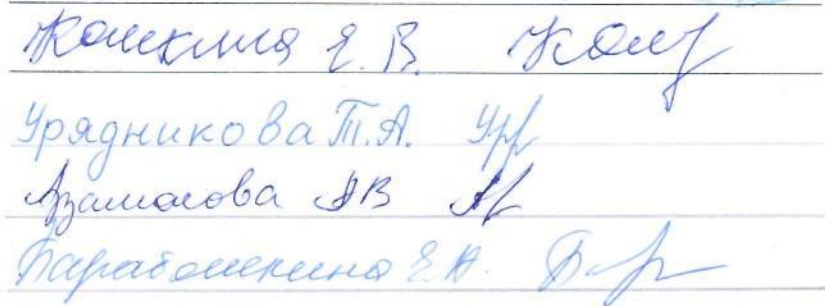 Кошкина Е.В.
Урядникова Т.А. Ур
Азаматова АВ
Барабошкина Е.А.